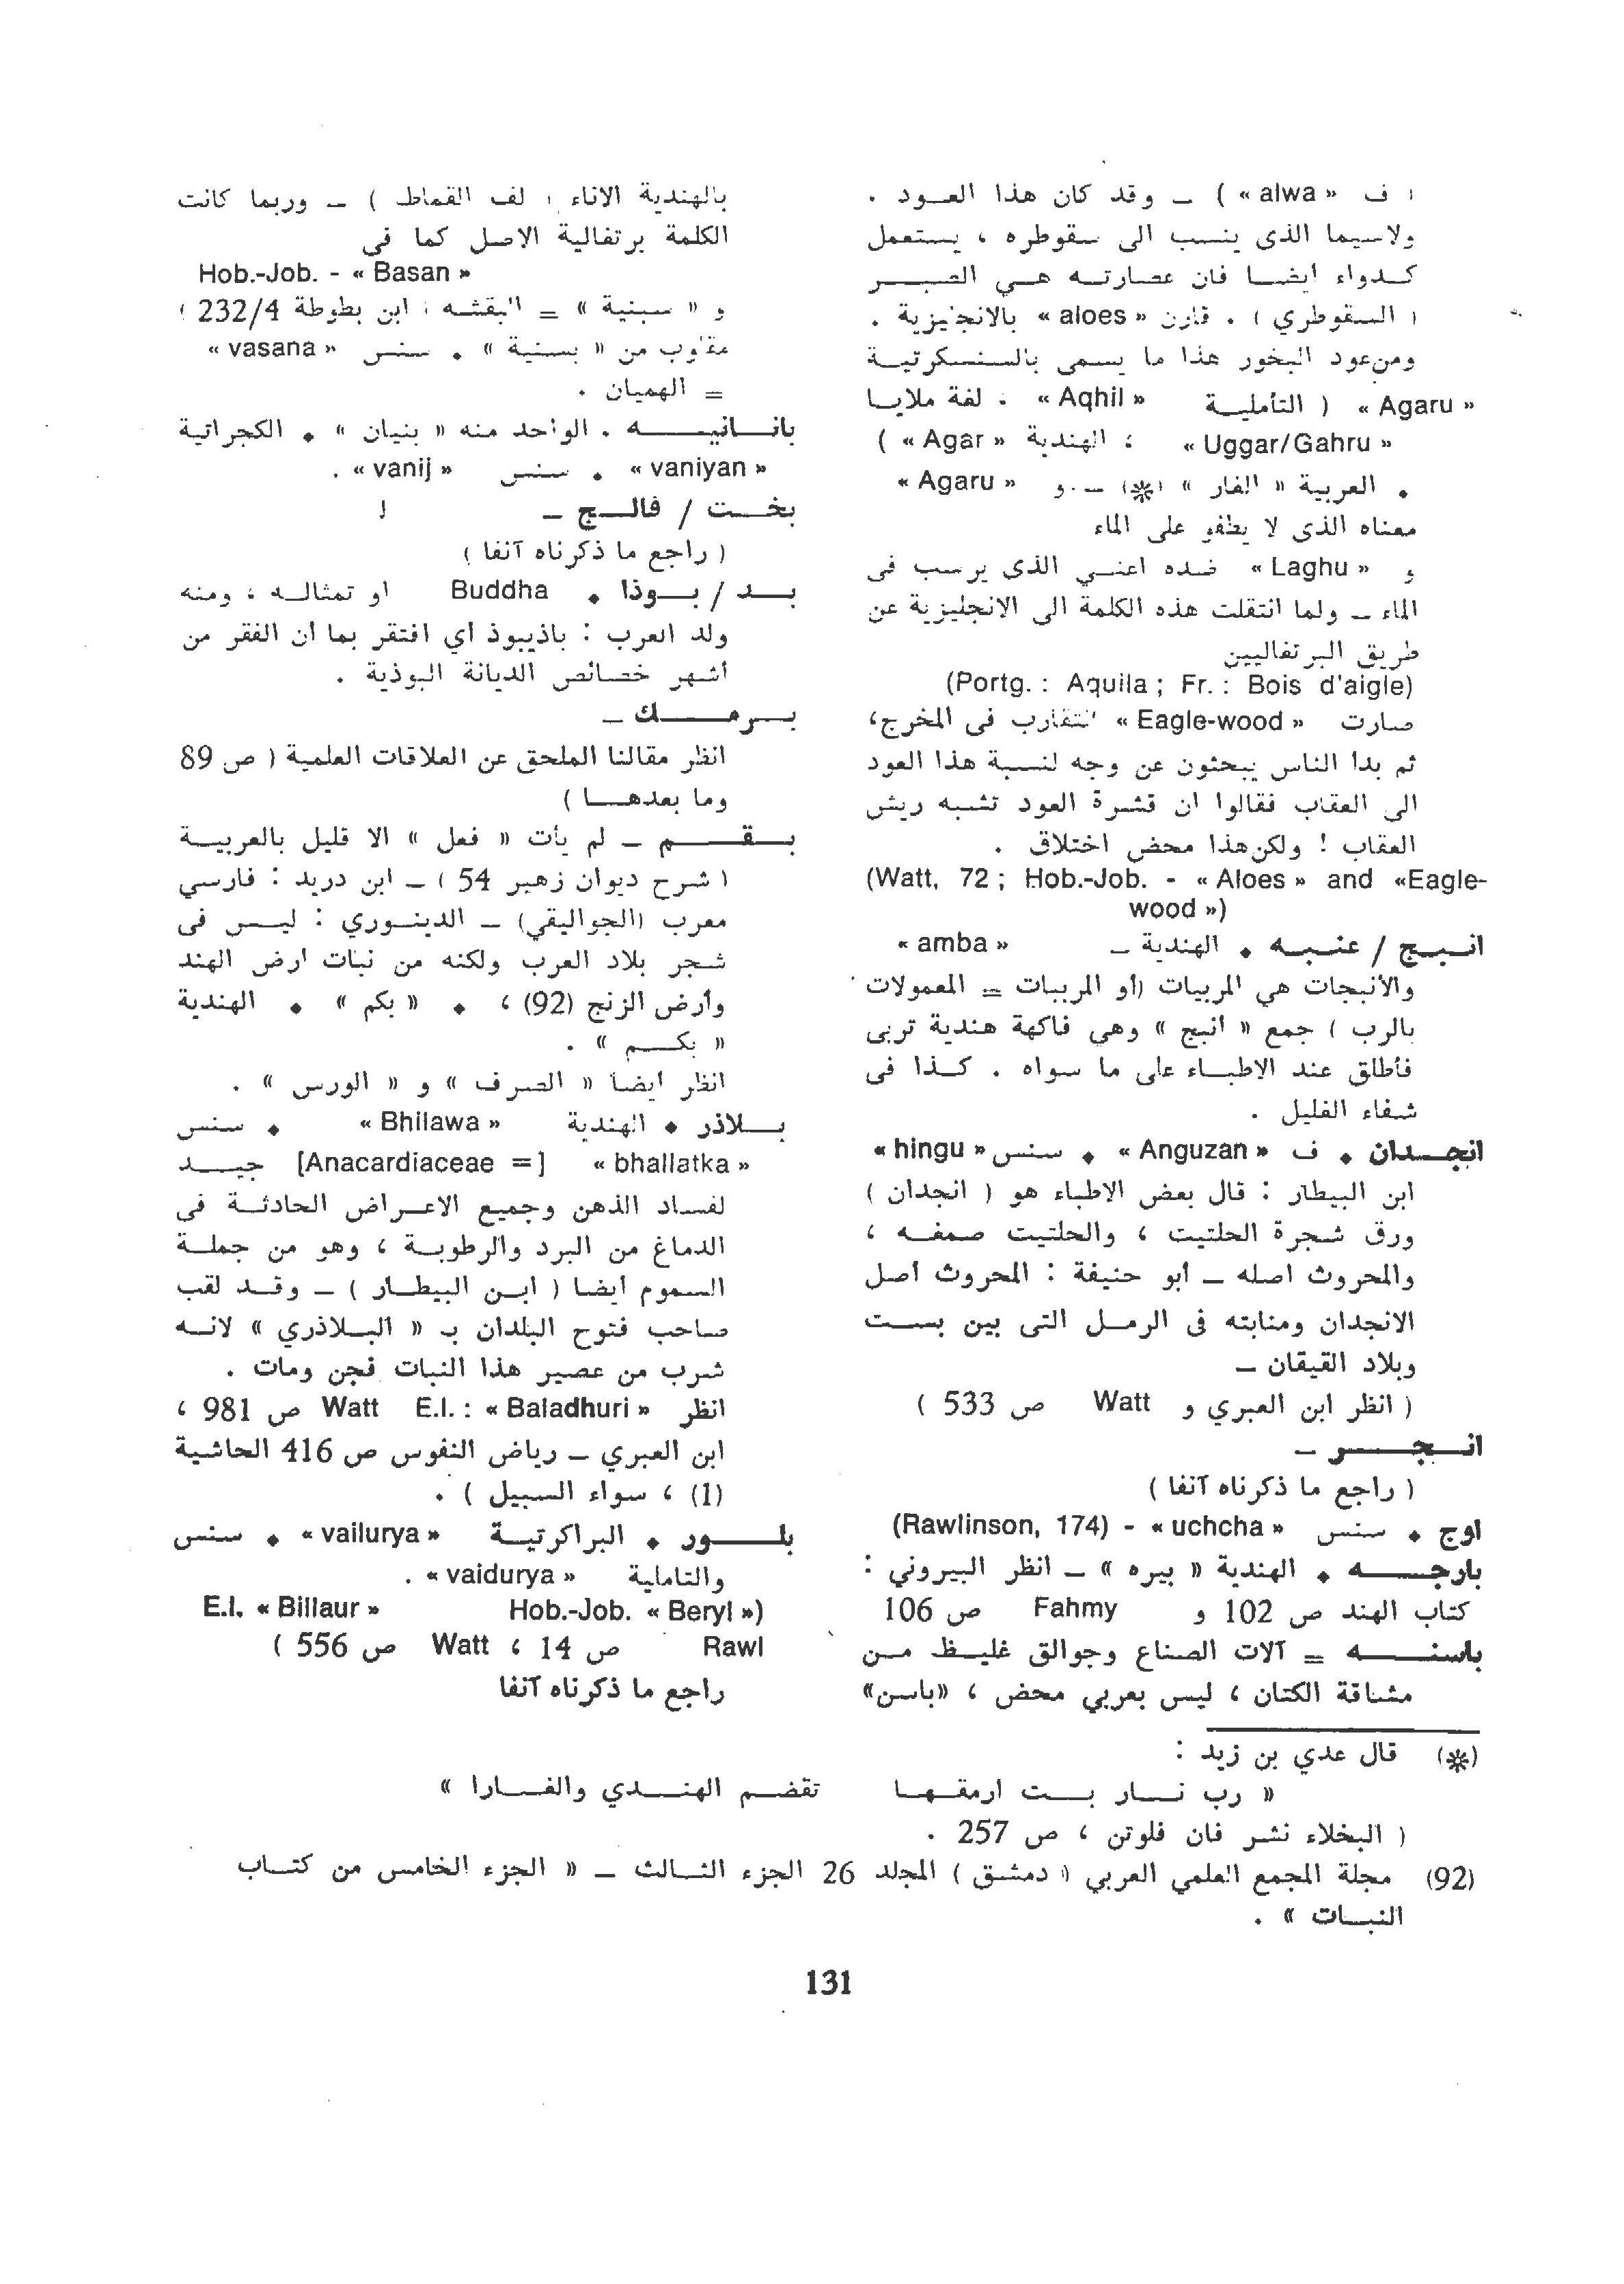 ( ف « alwa » ) ــ وقد كان هذا العود .
ولاسيما الذي ينسب الى سقوطره ، يستعمل
كدواء ايضا فان عصارته هي الصبر
( السقوطري ) . قارن « aloes » بالانجليزية .
ومن عود البخور هذا ما يسمى بالسنسكرتية
« Agaru » ( التأملية « Aqhil » . لغة ملايا
« Uggar/Gahru » ؛ الهندية « Agar » )
. العربية « الغار » (*) ــ . و « Agaru »
معناه الذى لا يطفو على الماء
و « Laghu » ضده اعني الذى يرسب فى
الماء ــ ولما انتقلت هذه الكلمة الى الانجليزية عن
طريق البرتغاليين
(Portg. : Aquila ; Fr. : Bois d'aigle)
صارت « Eagle-wood » لتقارب فى المخرج،
ثم بدا الناس يبحثون عن وجه لنسبة هذا العود
الى العقاب فقالوا ان قشرة العود تشبه ريش
العقاب ! ولكن هذا محض اختلاق .
(Watt, 72 ; Hob.-Job. - « Aloes » and «Eagle-
wood »)
انبج / عنبه . الهندية ــ « amba »
والانبجات هي المربيات (أو المرببات = المعمولات
بالرب ) جمع « انبج » وهى فاكهة هندية تربى
فأطلق عند الاطباء على ما سواه . كذا فى
شفاء الغليل .
انجدان . ف « Anguzan » . سنس « hingu »
ابن البيطار : قال بعض الاطباء هو ( انجدان )
ورق شجرة الحلتيت ، والحلتيت صمغه ،
والمحروث اصله ــ أبو حنيفة : المحروث أصل
الانجدان ومنابته فى الرمل التى بين بست
وبلاد القيقان ــ
( انظر ابن العبري و Watt ص 533 )
انجر ــ
( راجع ما ذكرناه آنفا )
اوج . سنس « uchcha » - (Rawlinson, 174)
بارجه . الهندية « بيره » ــ انظر البيروني :
كتاب الهند ص 102 و Fahmy ص 106
باسنه = آلات الصناع وجوالق غليظ من
مشاقة الكتان ، ليس بعربي محض ، «باسن»
بالهندية الاناء ( لف القماط ) ــ وربما كانت
الكلمة برتغالية الاصل كما فى
Hob.-Job. - « Basan »
و « سبنية » = البقشه ( ابن بطوطة 232/4 )
مقلوب من « بسنية » . سنس « vasana »
= الهميان .
بانانيه . الواحد منه « بنيان » . الكجراتية
« vaniyan » . سنس « vanij » .
بخت / فالج ــ !
( راجع ما ذكرناه آنفا )
بد / بوذا . Buddha او تمثاله ، ومنه
ولد العرب : باذيبوذ أي افتقر بما أن الفقر من
أشهر خصائص الديانة البوذية .
برمك ــ
انظر مقالنا الملحق عن العلاقات العلمية ( ص 89
وما بعدها )
بقم ــ لم يأت « فعل » الا قليل بالعربية
( شرح ديوان زهير 54 ) ــ ابن دريد : فارسي
معرب (الجواليقي) ــ الدينوري : ليس فى
شجر بلاد العرب ولكنه من نبات ارض الهند
وأرض الزنج (92) ، . « بكم » . الهندية
« بكم » .
انظر ايضا « الصرف » و « الورس » .
بلاذر . الهندية « Bhilawa » . سنس
« bhallatka » [Anacardiaceae =] جيد
لفساد الذهن وجميع الاعراض الحادثة فى
الدماغ من البرد والرطوبة ، وهو من جملة
السموم أيضا ( ابن البيطار ) ــ وقد لقب
صاحب فتوح البلدان بـ « البلاذري » لانه
شرب من عصير هذا النبات فجن ومات .
انظر « Baladhuri » : Watt E.I. ص 981 ،
ابن العبري ــ رياض النفوس ص 416 الحاشية
(1) ، سواء السبيل ) .
بلور . البراكرتية « vailurya » . سنس
والتاملية « vaidurya » .
E.I. « Billaur » Hob.-Job. « Beryl »)
Rawl ص 14 ، Watt ص 556 )
راجع ما ذكرناه آنفا
(*) قال عدي بن زيد :
« رب نار بت ارمقها تقضم الهندي والغارا »
( البخلاء نشر فان فلوتن ، ص 257 .
(92) مجلة المجمع العلمي العربي ( دمشق ) المجلد 26 الجزء الثالث ــ « الجزء الخامس من كتاب
النبات » .
131